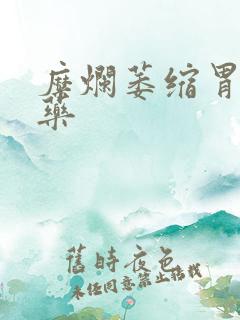 糜烂萎缩胃
药
舊時夜色
未经同意禁止搭载